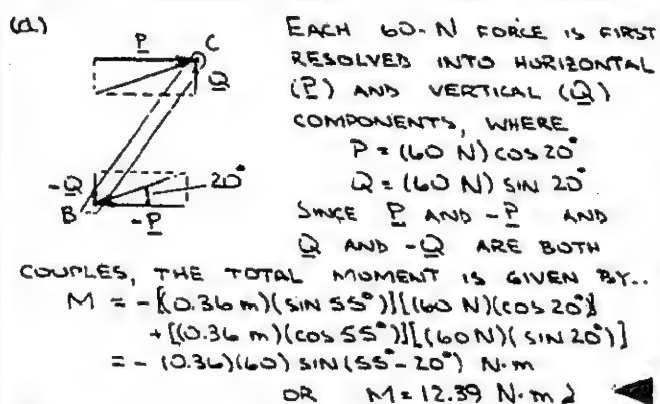 (a)
P
C
Q
-Q
20°
B
-P
EACH 60-N FORCE IS FIRST
RESOLVED INTO HORIZONTAL
(P) AND VERTICAL (Q)
COMPONENTS, WHERE
P = (60 N) COS 20°
Q = (60 N) SIN 20°
SINCE P AND -P AND
Q AND -Q ARE BOTH
COUPLES, THE TOTAL MOMENT IS GIVEN BY..
M = -[(0.36 m)(SIN 55°)][(60 N)(COS 20°)]
+[(0.36 m)(COS 55°)][(60N)(SIN 20°)]
= - (0.36)(60) SIN (55° - 20°) N·m
OR M = 12.39 N·m ↻